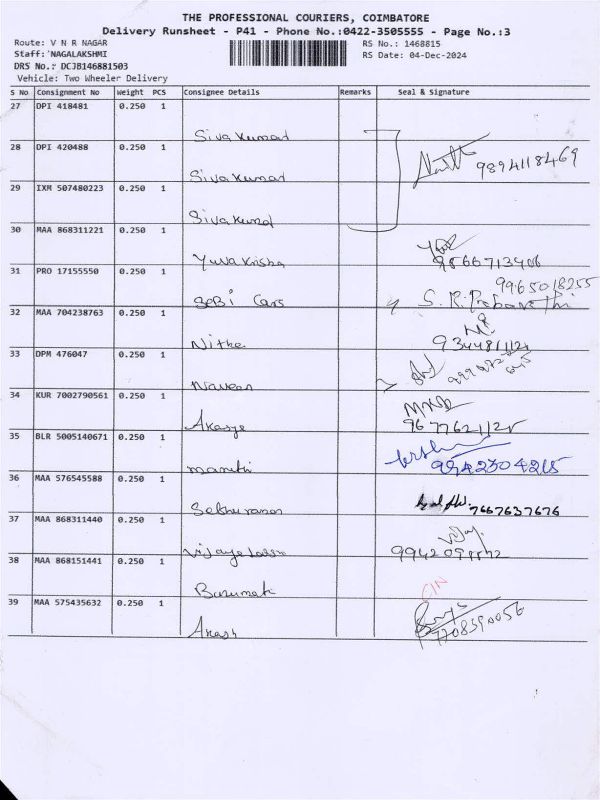 THE PROFESSIONAL COURIERS, COIMBATORE
Delivery Runsheet - P41 - Phone No.:0422-3505555 - Page No.:3
Route: V N R NAGAR
Staff: NAGALAKSHMI
DRS No.: DCJB146881503
Vehicle: Two Wheeler Delivery
RS No.: 1468815
RS Date: 04-Dec-2024
S No Consignment No Weight PCS Consignee Details Remarks Seal & Signature
27 DPI 418481 0.250 1
Sivakumar
28 DPI 420488 0.250 1
9894118469
Sivakumar
29 IXM 507480223 0.250 1
30 MAA 868311221 0.250 1
Yuvakrisha
31 PRO 17155550 0.250 1
9965018255
Sebi Cars
32 MAA 704238763 0.250 1
33 DPM 476047 0.250 1
Naveen
34 KUR 7002790561 0.250 1
9677621125
35 BLR 5005140671 0.250 1
9942304215
36 MAA 576545588 0.250 1
7667637676
37 MAA 868311440 0.250 1
38 MAA 868151441 0.250 1
39 MAA 575435632 0.250 1
7708390056
Akash